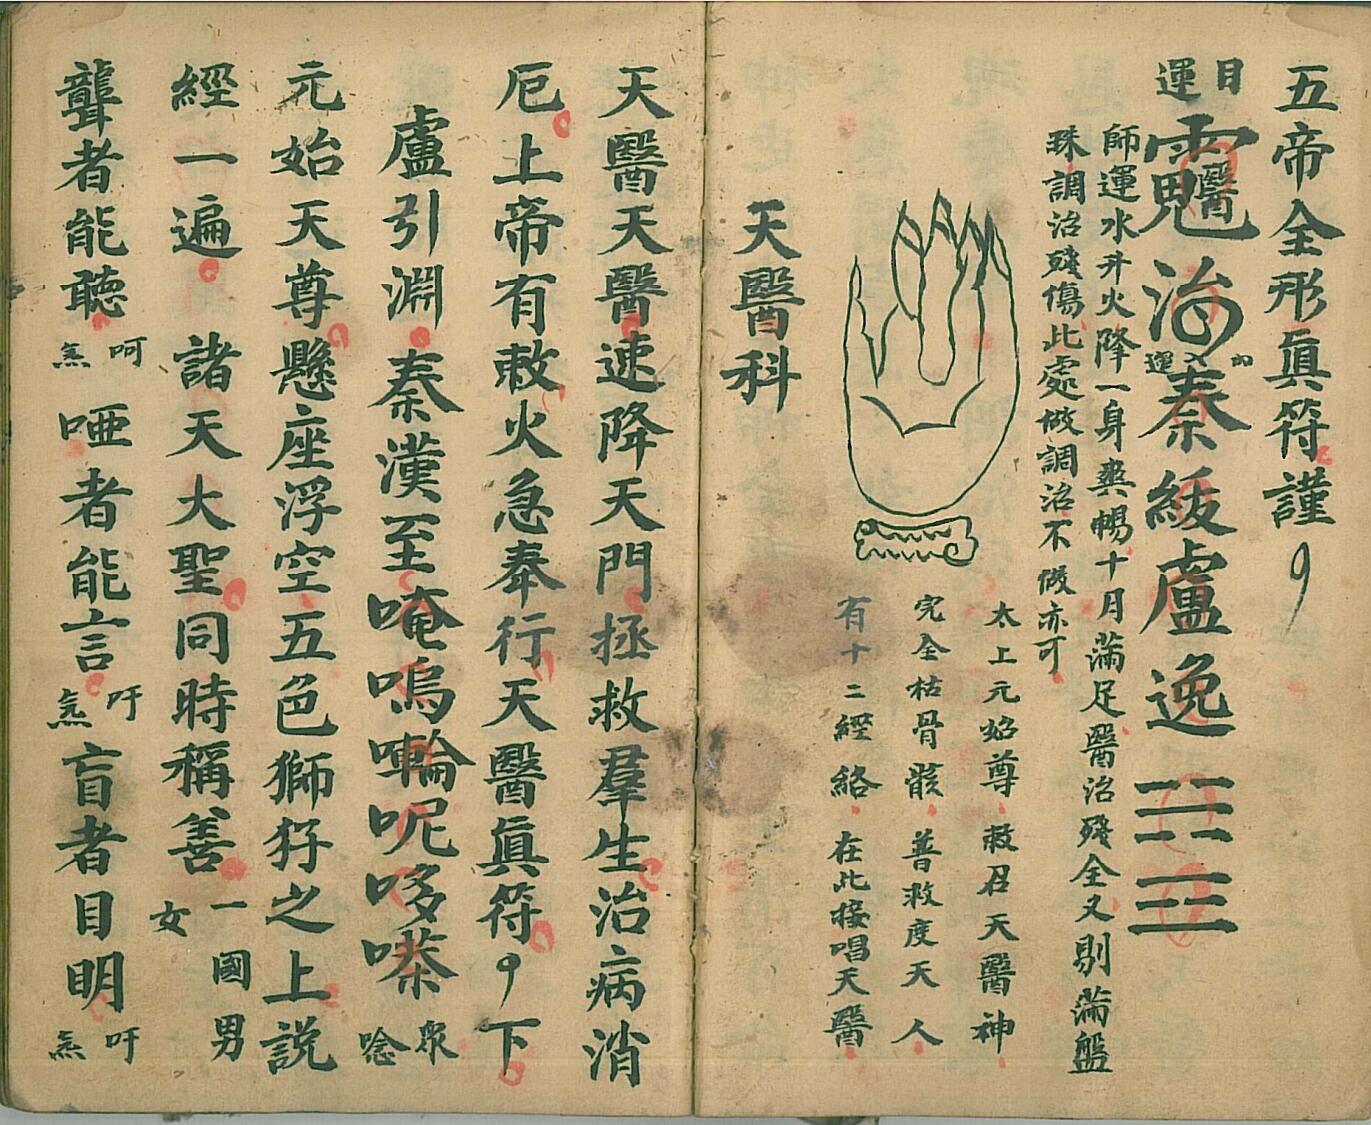 五帝全形眞符謹
目運
醫治秦緩盧逸
師運水升火降一身爽暢十月滿足醫治殘全又剔滿盤
珠調治殘傷此處做調治不做亦可
太上元始尊敕召天醫神
完全枯骨骸普救度天人
有十二經絡在此接唱天醫
天醫科
天醫天醫速降天門拯救羣生治病消
厄上帝有敕火急奉行天醫眞符下
盧引淵秦漢至唵嗚㗸呢哆𠺗眾唸
元始天尊懸座浮空五色獅子之上説
經一遍諸天大聖同時稱善一國男女
聾者能聽呵炁啞者能言吁炁盲者目明吁炁